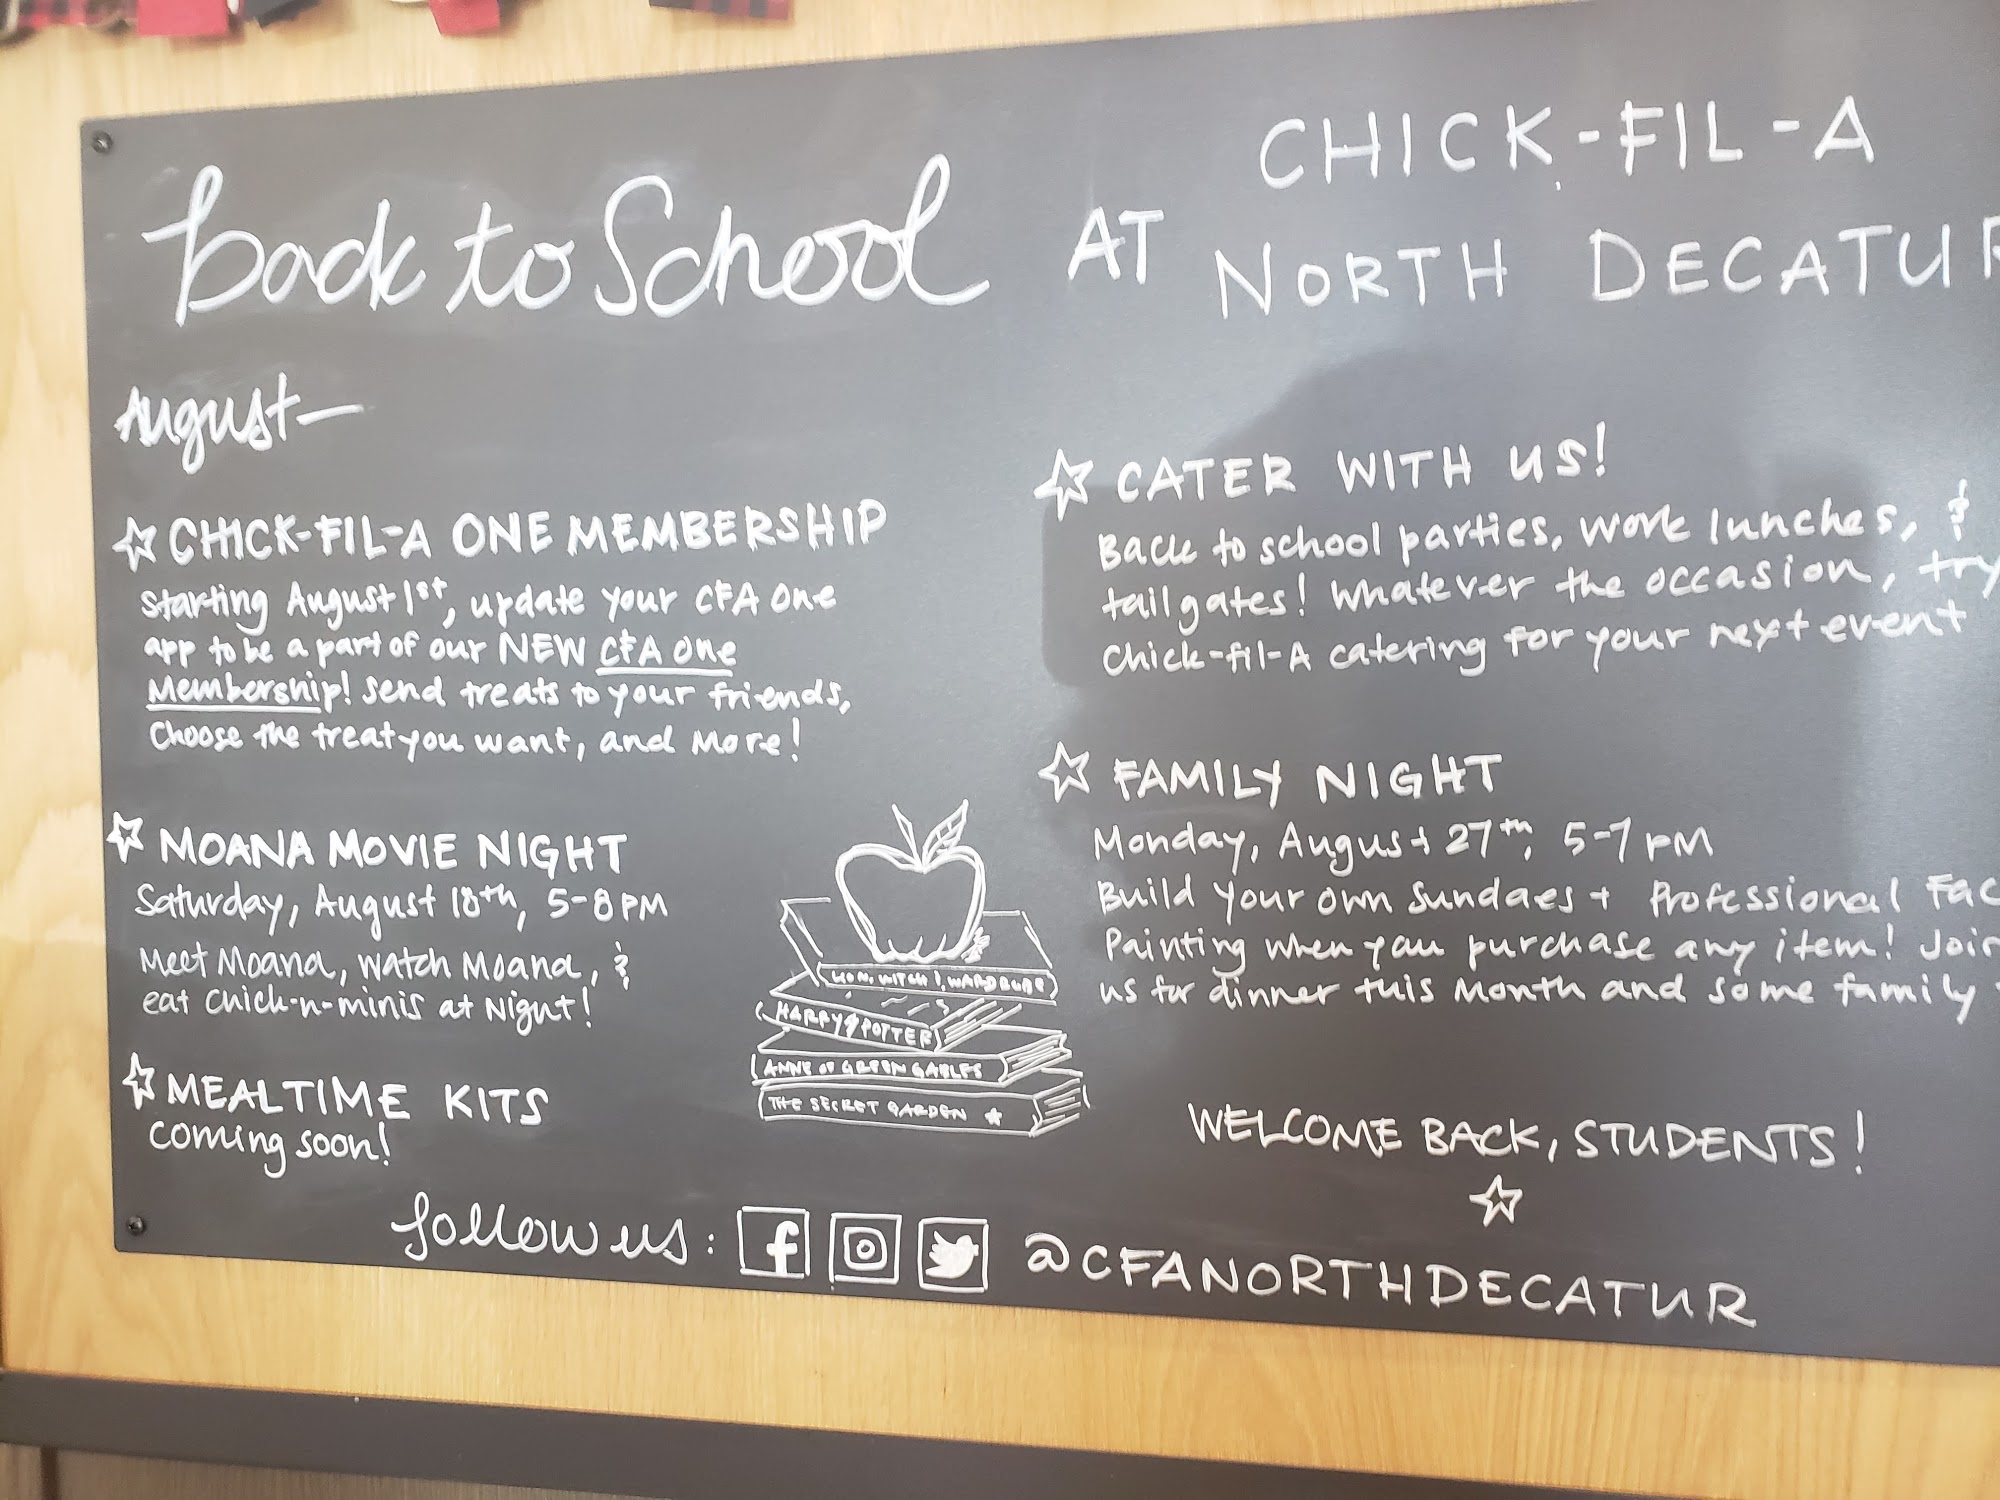 back to School
CHICK-FIL-A
AT NORTH DECATUR
August—
☆ CHICK-FIL-A ONE MEMBERSHIP
Starting August 1st, update your CFA One
app to be a part of our NEW CFA One
Membership! Send treats to your friends,
Choose the treat you want, and More!
☆ MOANA MOVIE NIGHT
Saturday, August 18th, 5-8PM
Meet Moana, Watch Moana, &
eat Chick-n-minis at Night!
☆ MEALTIME KITS
coming soon!
LION, WITCH, WARDROBE
HARRY POTTER
ANNE OF GREEN GABLES
THE SECRET GARDEN ☆
☆ CATER WITH US!
Back to school parties, work lunches, &
tailgates! Whatever the occasion, try
Chick-fil-A catering for your next event
☆ FAMILY NIGHT
Monday, August 27th, 5-7 PM
Build Your Own Sundaes + Professional Fac
Painting when you purchase any item! Join
us for dinner this Month and some family
WELCOME BACK, STUDENTS!
☆
follow us: @CFANORTHDECATUR